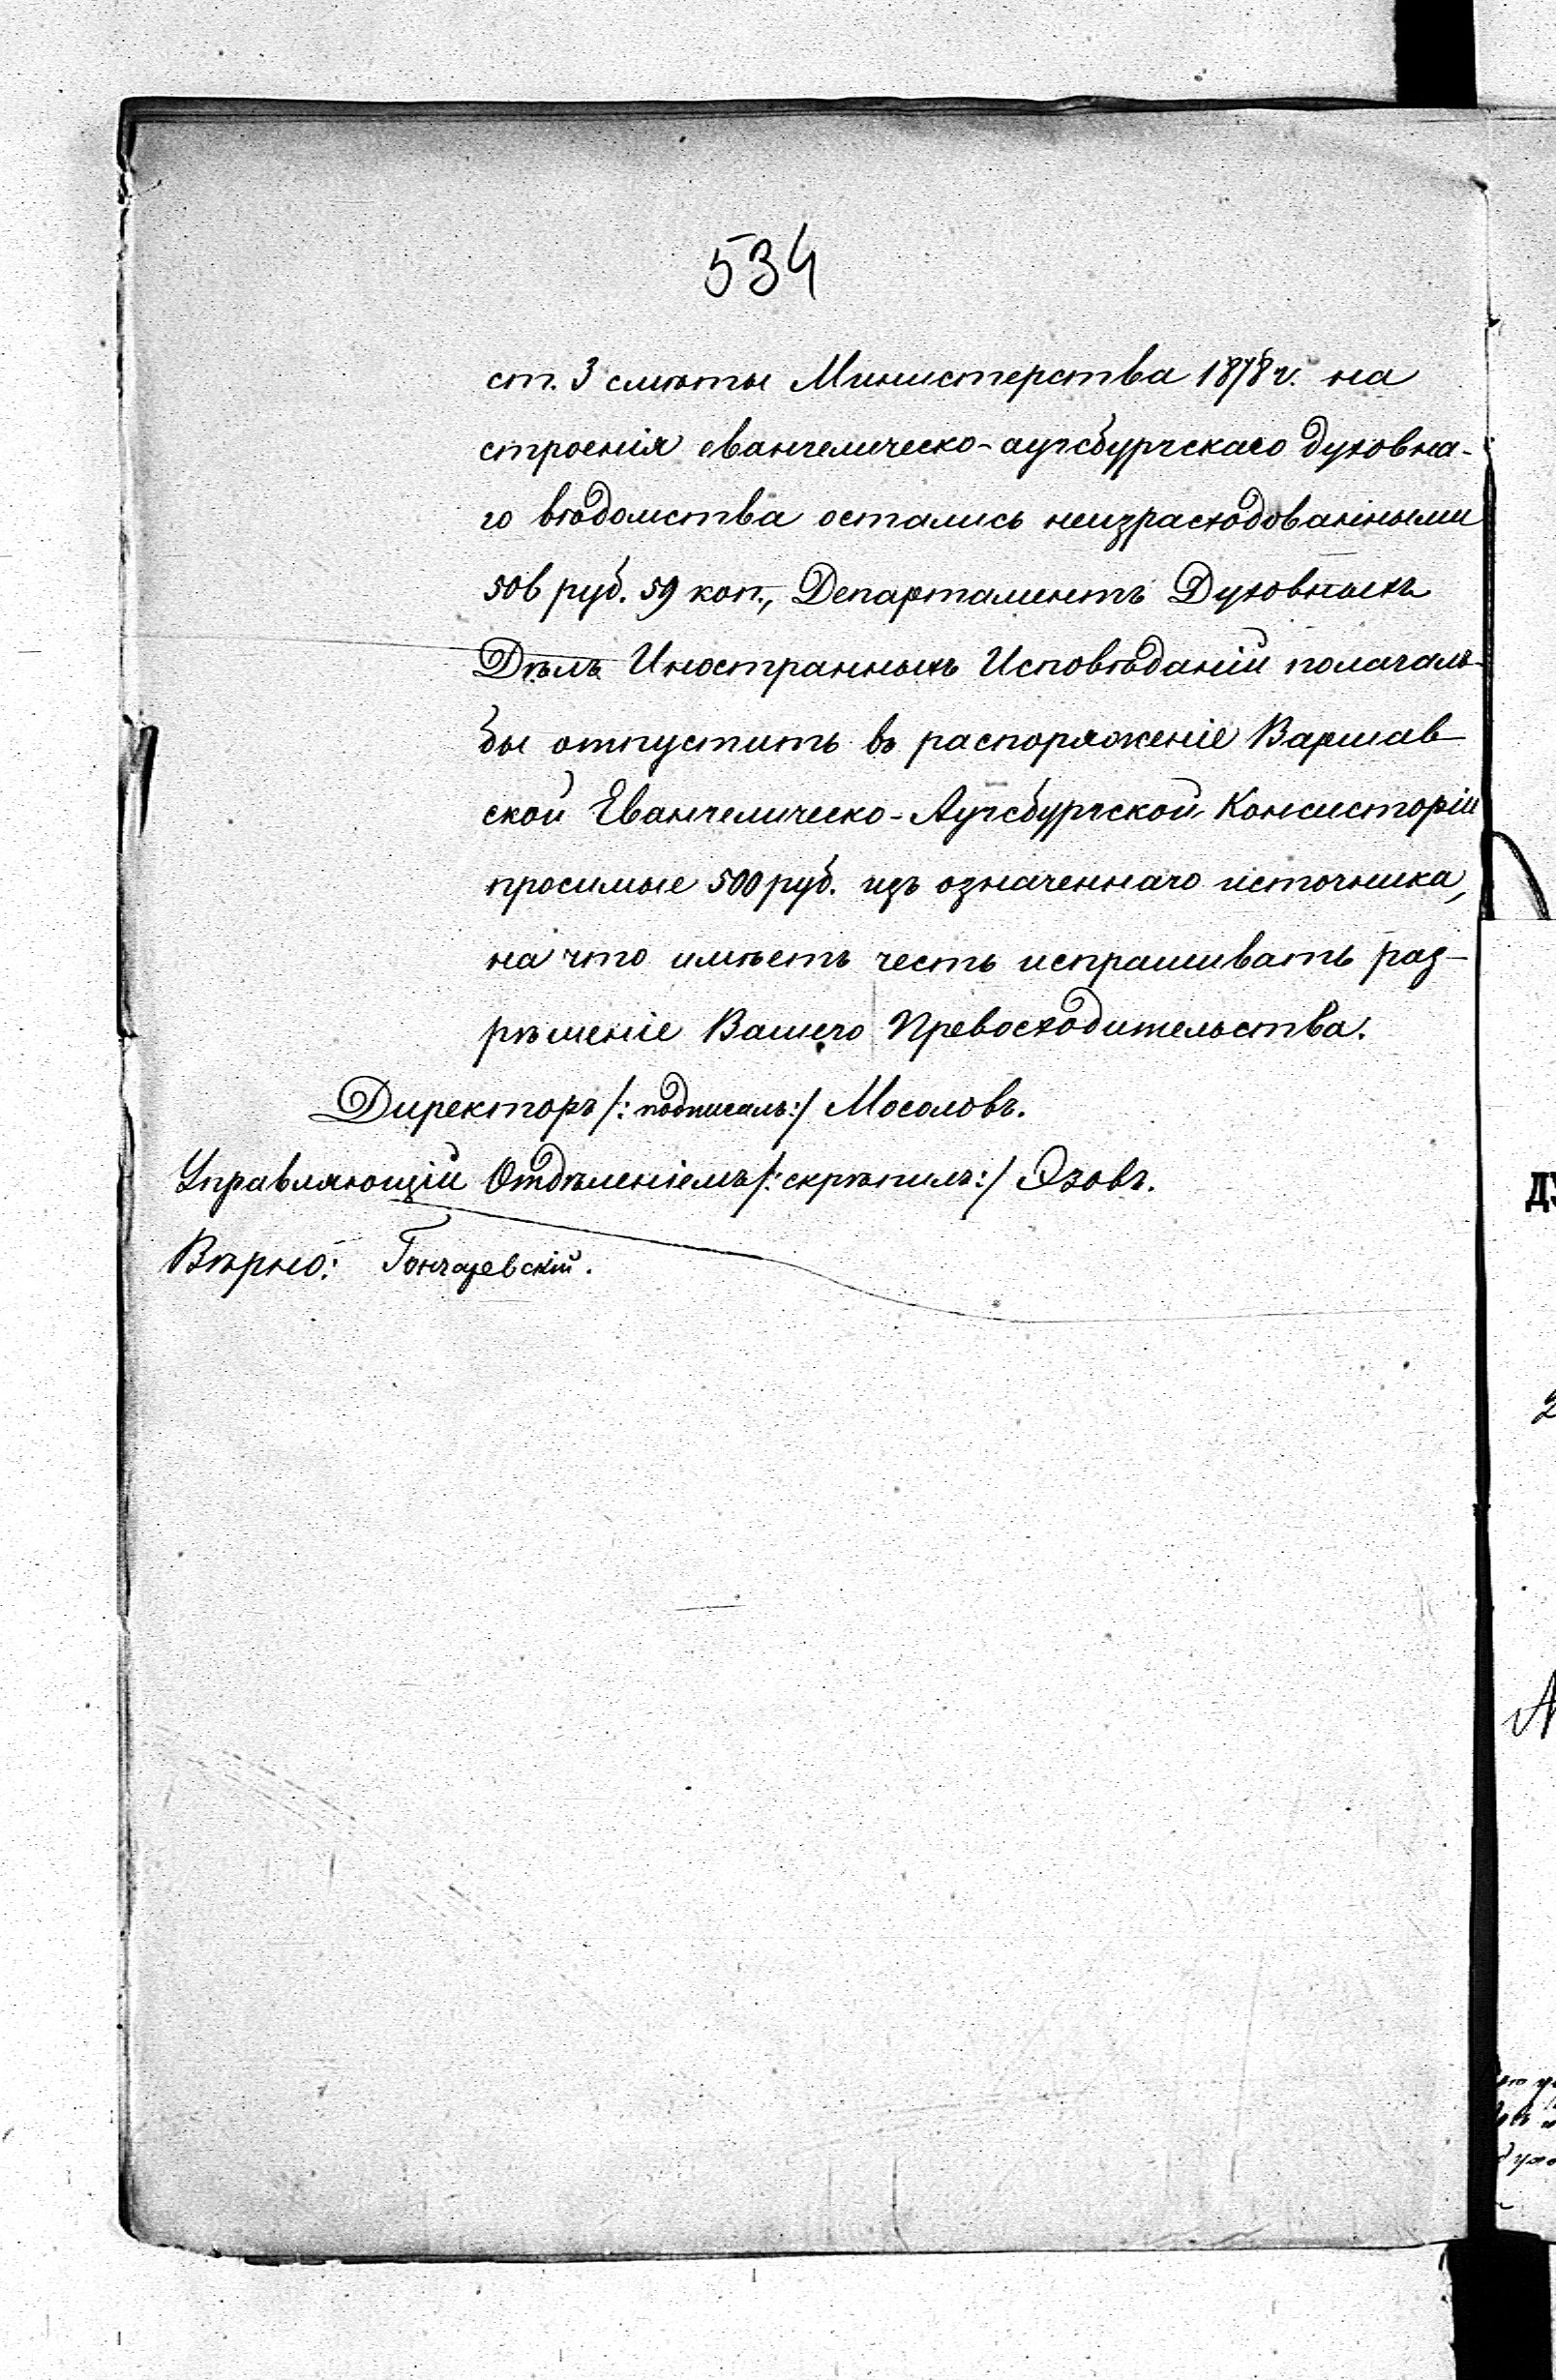 534
ст. 3 смѣты Министерства 1878 г. на
строенія евангелическо-аугсбургскаго духовна-
го вѣдомства остались неизрасходованными
506 руб. 59 коп., Департаментъ Духовныхъ
Дѣлъ Иностранныхъ Исповѣданій полагалъ
бы отпустить въ распоряженіе Варшав-
ской Евангелическо-Аугсбургской Консисторіи
просимые 500 руб. изъ означеннаго источника,
на что имѣетъ честь испрашивать раз-
рѣшеніе Вашего Превосходительства.
Директоръ /:подписалъ:/ Мосоловъ.
Управляющій Отдѣленіемъ /:скрѣпилъ:/ Эзовъ.
Вѣрно: Гончаревскій.